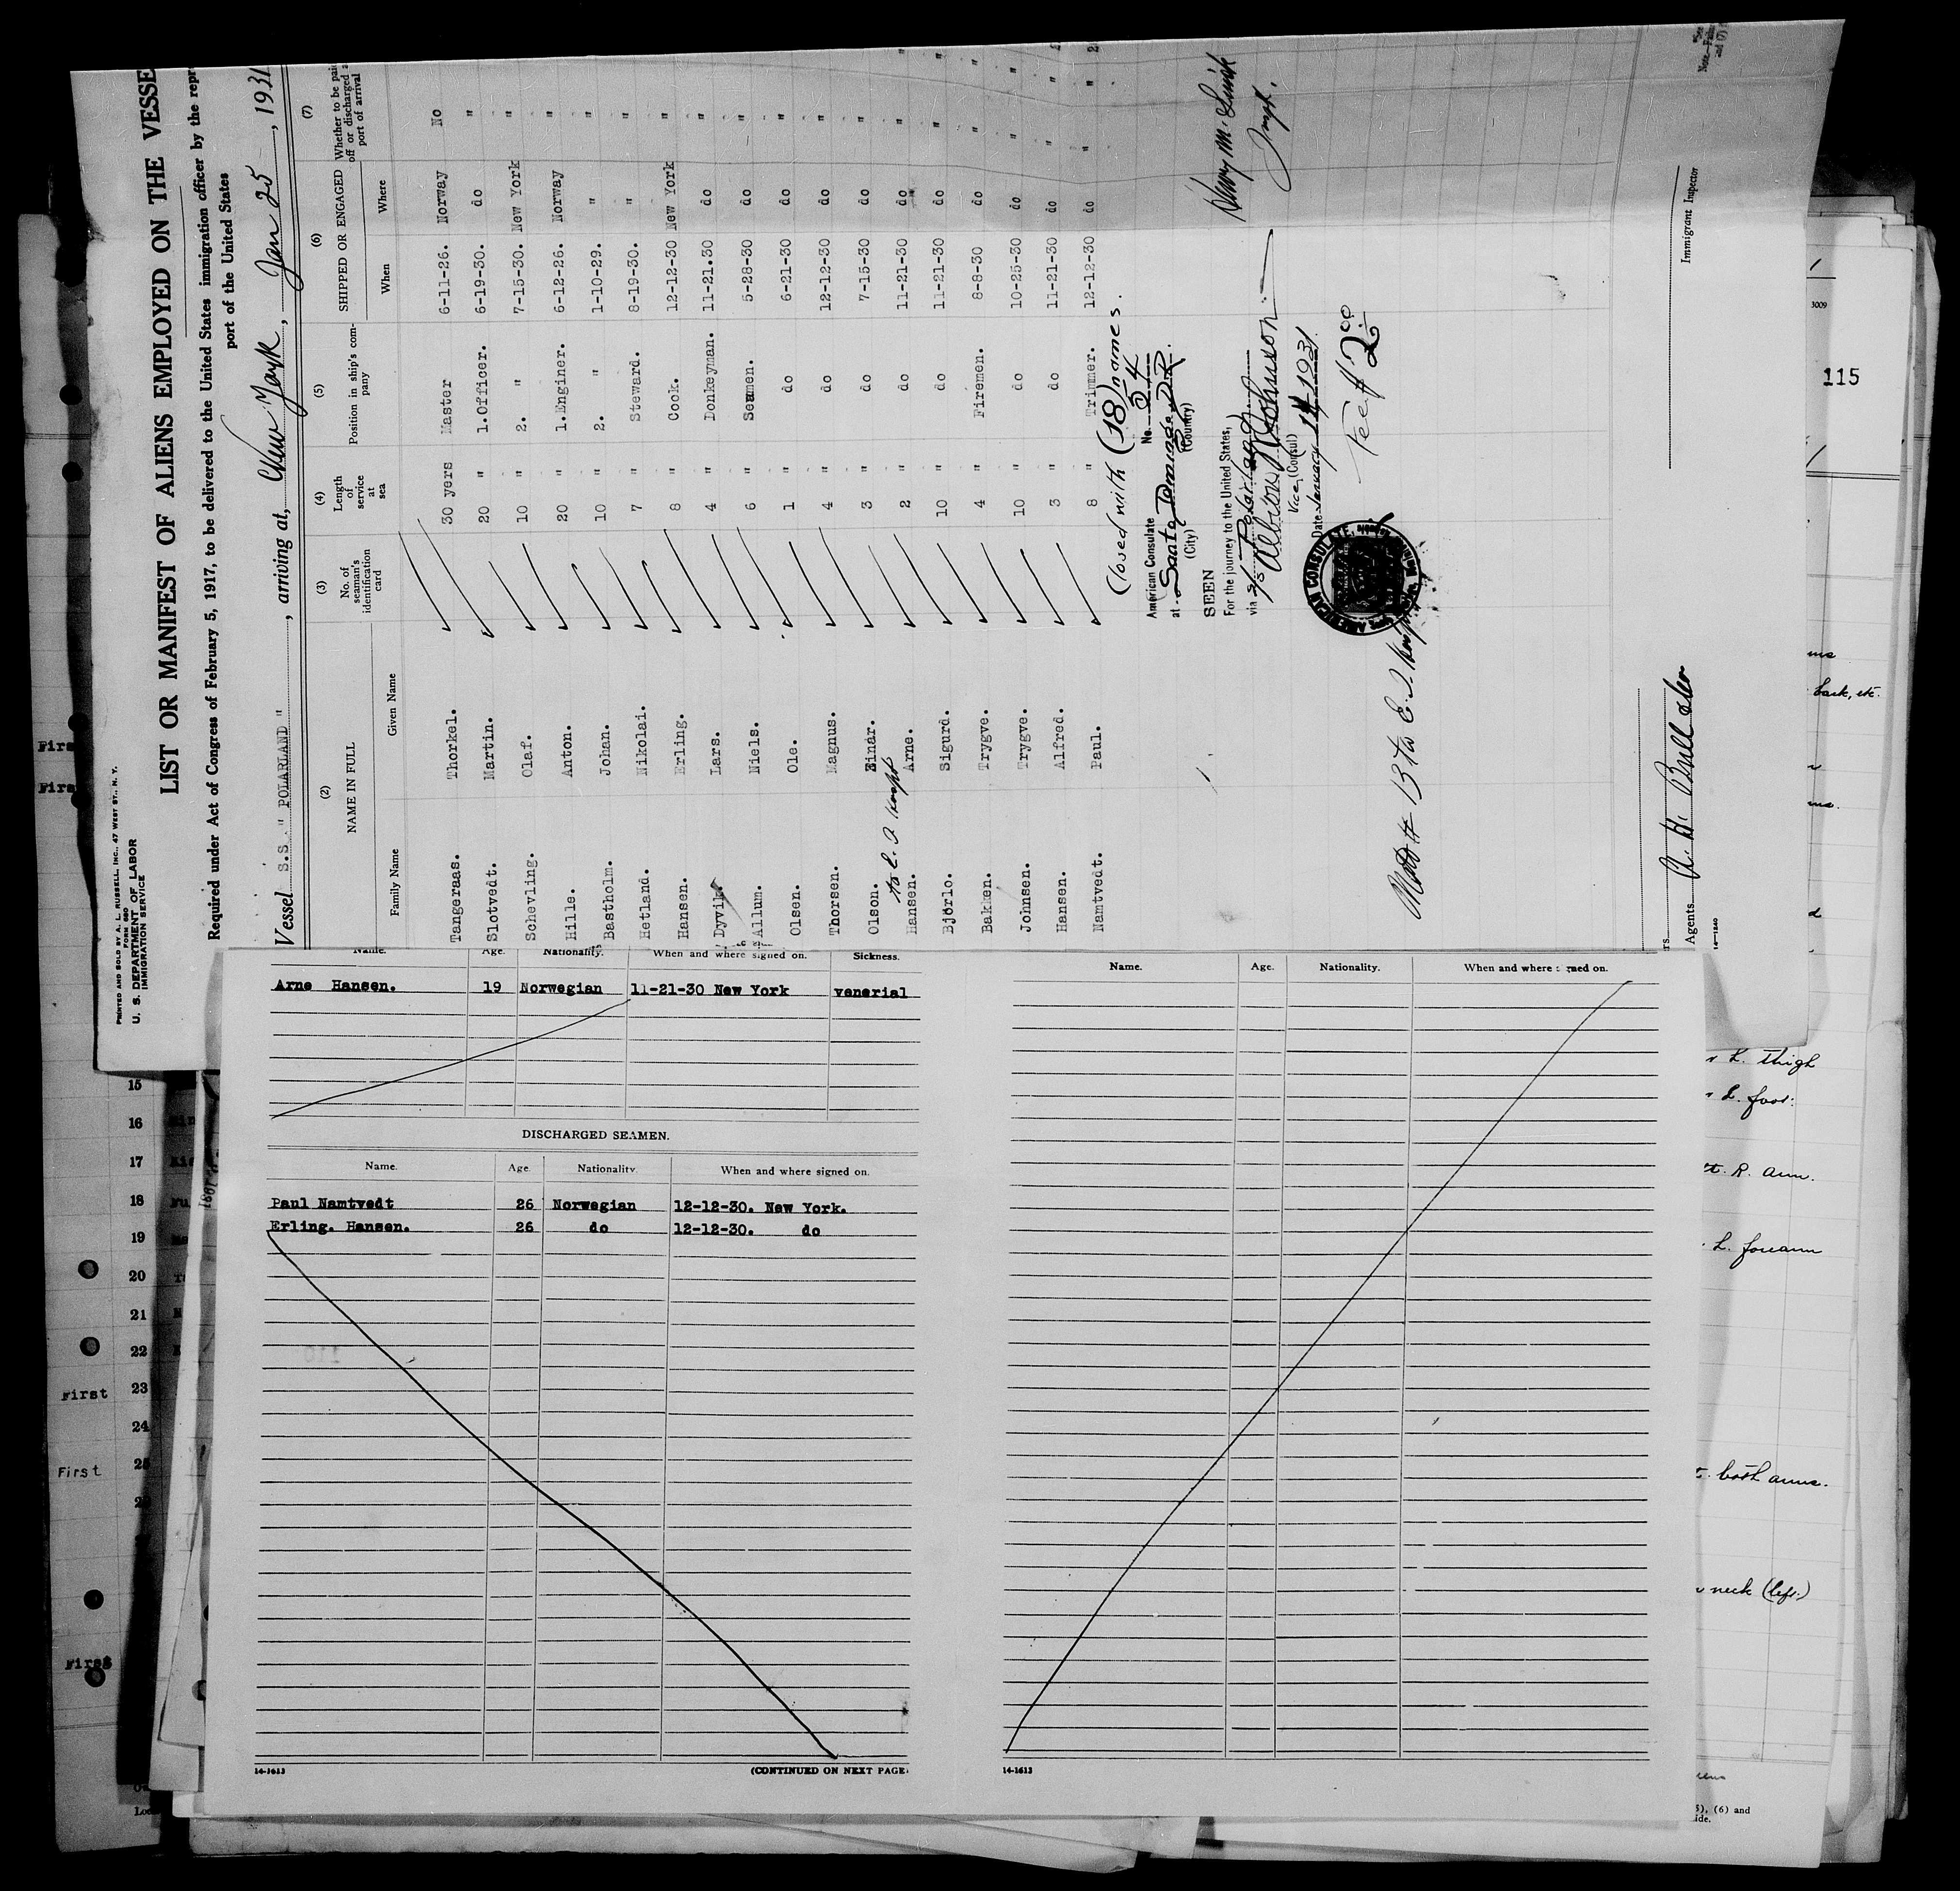 PRINTED AND SOLD BY A. L. RUSSELL, INC., 47 WEST ST., N. Y.
FORM 680
U. S. DEPARTMENT OF LABOR
IMMIGRATION SERVICE
LIST OR MANIFEST OF ALIENS EMPLOYED ON THE VESSE
Required under Act of Congress of February 5, 1917, to be delivered to the United States immigration officer by the repr
port of the United States
Vessel S.S. " POLARLAND ", arriving at, New York, Jan 25, 1931
(2) (3) (4) (5) (6) (7)
NAME IN FULL No. of seaman's identification card Length of service at sea Position in ship's company SHIPPED OR ENGAGED Whether to be paid off or discharged at port of arrival
Family Name Given Name When Where
Tangeraas. Thorkel. 30 yers Master 6-11-26. Norway No
Slotvedt. Martin. 20 " 1.Officer. 6-19-30. do "
Schevling. Olaf. 10 " 2. " 7-15-30. New York "
Hille. Anton. 20 " 1.Enginer. 6-12-26. Norway "
Bastholm. Johan. 10 " 2. " 1-10-29. " "
Hetland. Nikolai. 7 " Steward. 8-19-30. " "
Hansen. Erling. 8 " Cook. 12-12-30 New York "
Dyvik. Lars. 4 " Donkeyman. 11-21.30 do "
Allum. Niels. 6 " Seamen. 5-28-30 do "
Olsen. Ole. 1 " do 6-21-30 do "
Thorsen. Magnus. 4 " do 12-12-30 do "
Olson. Einar. 3 " do 7-15-30 do "
Hansen. Arne. 2 " do 11-21-30 do "
Björlo. Sigurd. 10 " do 11-21-30 do "
Bakken. Trygve. 4 " Firemen. 8-8-30 do "
Johnsen. Trygve. 10 " do 10-25-30 do "
Hansen. Alfred. 3 " do 11-21-30 do "
Namtvedt. Paul. 8 " Trimmer. 12-12-30 do "
Closed with (18) names.
American Consulate No. 54
at Santo Domingo D.R.
(City) (Country)
SEEN
For the journey to the United States,
via S/S Polarland
Albion Johnson
Vice (Consul)
Date January 14 1931
Fee # 2.00
AMERICAN CONSULATE
Henry M.
Insp.
# 13 to E. I.
Immigrant Inspector
Agents
14-1240
Name. Age. Nationality. When and where signed on. Sickness.
Arne Hansen. 19 Norwegian 11-21-30 New York venerial
DISCHARGED SEAMEN.
Name. Age. Nationality. When and where signed on.
Paul Namtvedt 26 Norwegian 12-12-30. New York.
Erling. Hansen. 26 do 12-12-30. do
14-1613 (CONTINUED ON NEXT PAGE
Name. Age. Nationality. When and where signed on.
14-1613
First
First
15
16
17
18
19
20
21
22
First 23
24
First 25
First
3009
115
back, etc.
L. thigh
L. foot.
R. arm.
L. forearm
both arms.
neck (left)
(6) and